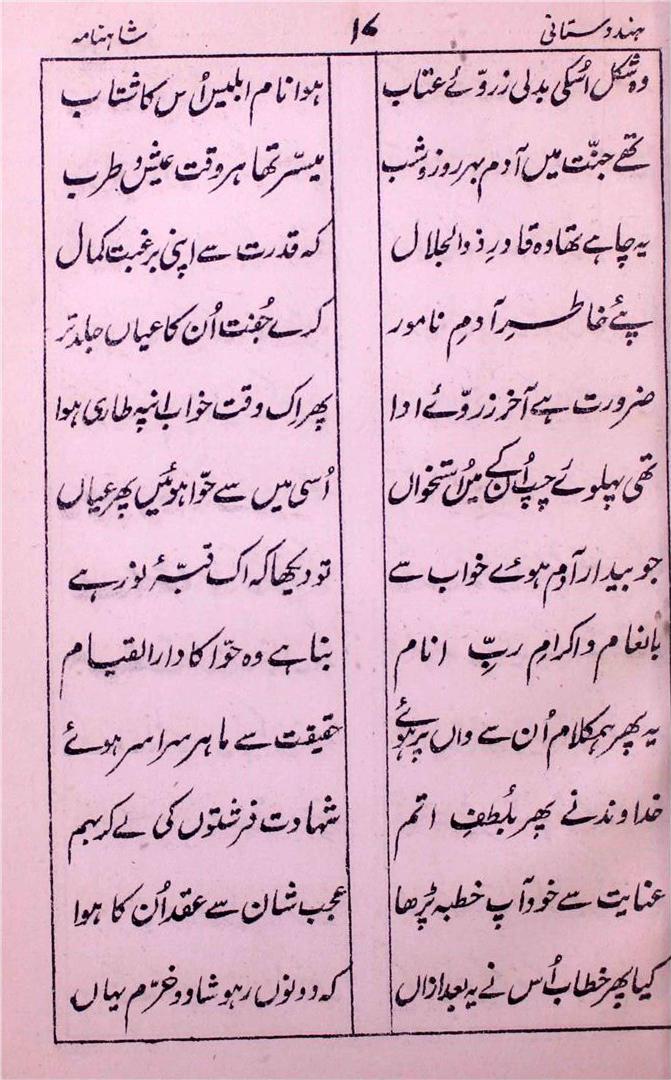 ہندوستانی ۱۷ شاہنامہ
وہ شکل اُسکی بدلی زروئے عتاب ہوا نام ابلیس اُس کا شتاب
تھے جنّت میں آدم بہر روز و شب میسّر تھا ہر وقت عیش و طرب
یہ چاہے تھا وہ قادرِ ذوالجلال کہ قدرت سے اپنی برغبت کمال
پئے خاطرِ آدمِ نامور کرے جُفت اُن کا عیاں جلد تر
ضرورت ہے آخر زروئے ادا پھر اِک وقت خواب انپہ طاری ہوا
تھی پہلوئے چپ اُن کے میں اُستخواں اُسی میں سے حوّا ہوئیں پھر عیاں
جو بیدار آدم ہوے خواب سے تو دیکھا کہ اک قبّۂ نور ہے
بانعام و اکرامِ ربِّ انام بنا ہے وہ حوّا کا دار القیام
یہ پھر ہمکلام اُن سے واں پر ہوئے حقیقت سے ماہر سراسر ہوئے
خداوند نے پھر بلُطفِ اتم شہادت فرشتوں کی لے کر بہم
عنایت سے خود آپ خطبہ پڑھا عجب شان سے عقد اُن کا ہوا
کیا پھر خطاب اُس نے یہ بعد ازاں کہ دونوں رہو شاد و خرّم یہاں